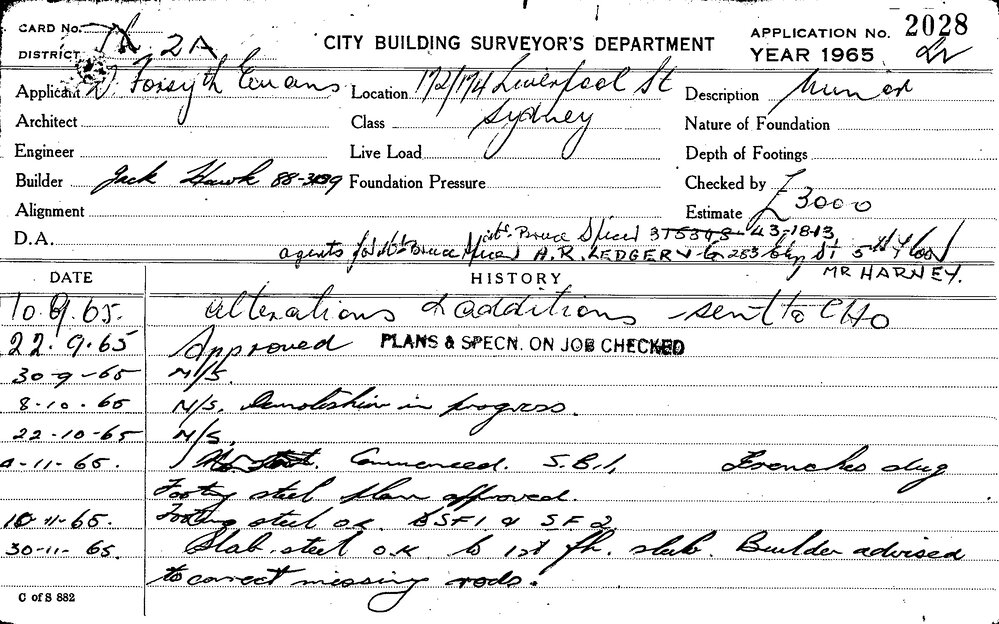 CARD No.
DISTRICT 2A
CITY BUILDING SURVEYOR'S DEPARTMENT
APPLICATION No. 2028
YEAR 1965
Applicant Forsyth Evans
Location 172/174 Liverpool St
Sydney
Description Minor
Architect
Class
Nature of Foundation
Engineer
Live Load
Depth of Footings
Builder Jack Hawk 88-3139
Foundation Pressure
Checked by
Alignment
Estimate £3000
D.A.
Bruce Spicer 43-1813
agents for Bruce Spicer A.R. LEDGER 283 St 5th Floor
MR HARNEY.
DATE
HISTORY
10.9.65. alterations & additions sent to CHO
22.9.65 Approved PLANS & SPECN. ON JOB CHECKED
30-9-65 N/S.
8-10-65 N/S. Demolition in progress.
22-10-65 N/S.
-11-65. Commenced. S.B.1, Trenches dug
Footing steel plan approved.
10-11-65. Footing steel o.k. SF1 & SF2
30-11-65. Slab steel o.k to 1st flr. slab. Builder advised
to correct missing rods.
C of S 882